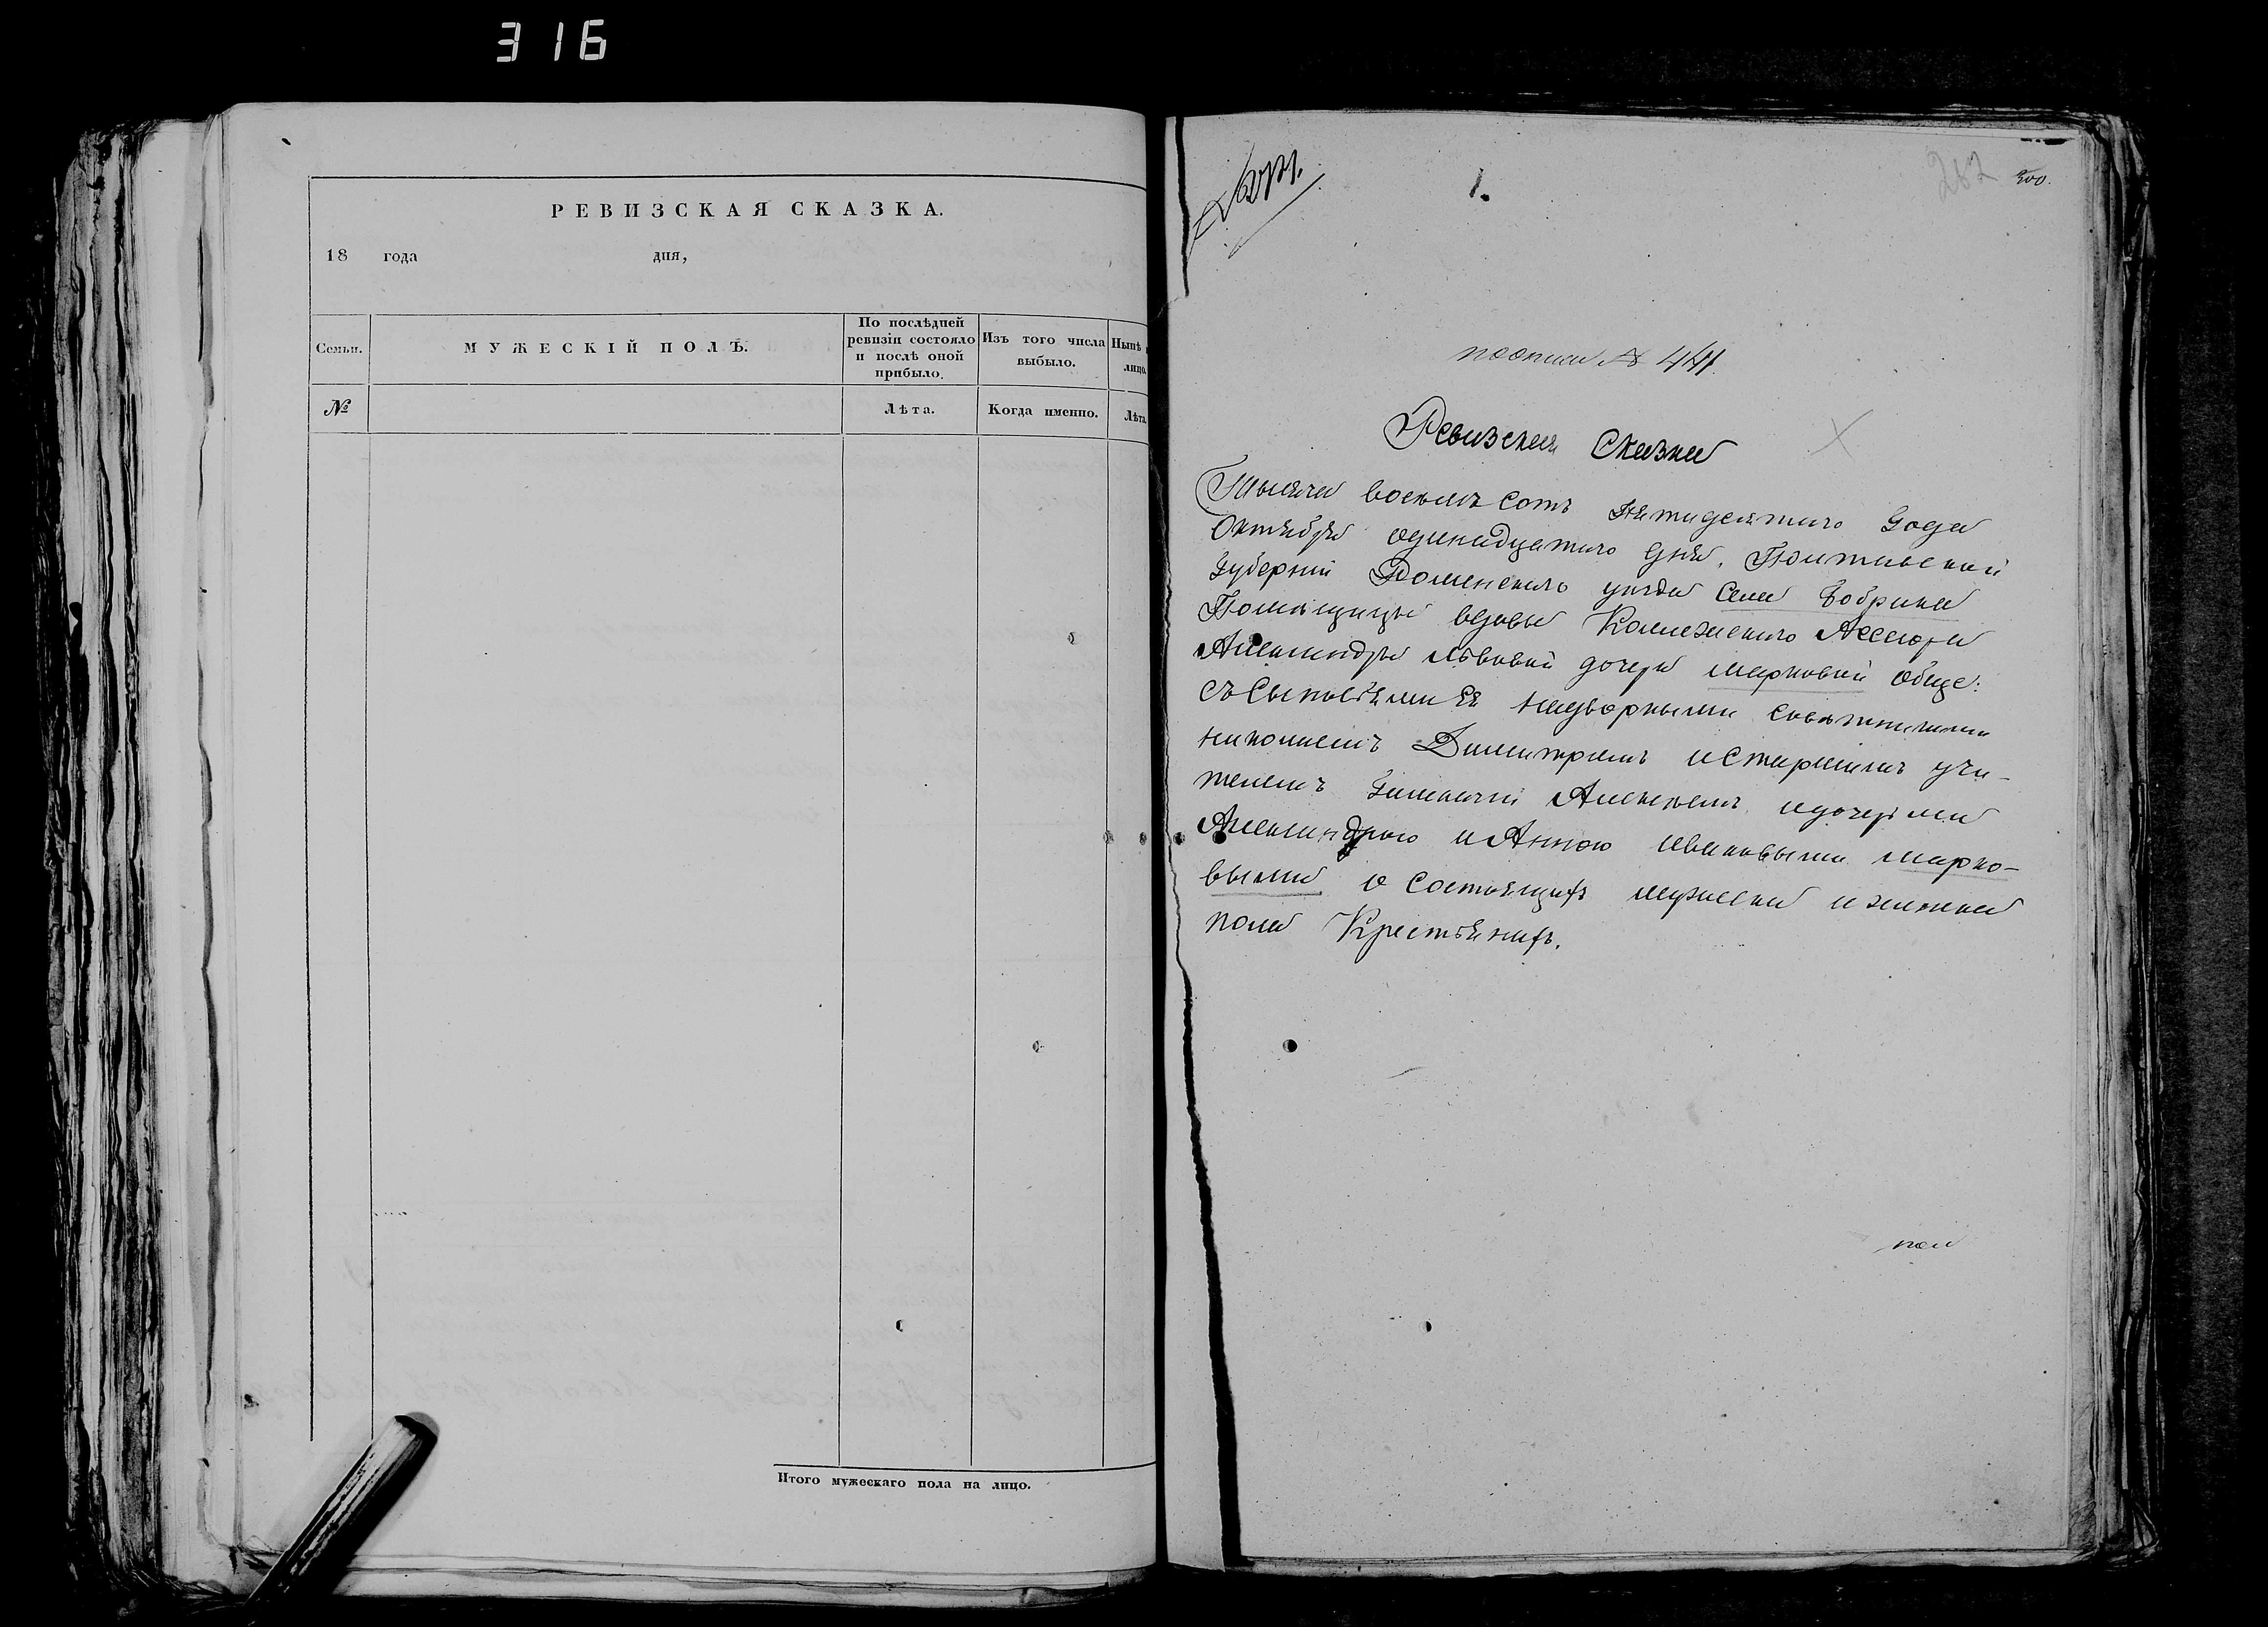 316
РЕВИЗСКАЯ СКАЗКА.
18 года дня,
Семьи.
МУЖЕСКІЙ ПОЛЪ.
По послѣдней
ревизіи состояло
и послѣ оной
прибыло.
Изъ того числа
выбыло.
Нынѣ
лицо.
№
Лѣта.
Когда именно.
Лѣта
Итого мужескаго пола на лицо.
1.
262
300.
по описи №
Ревизская Сказка
Тысяча восемьсотъ пятидесятаго Года
Октября одинадцатаго дня, Полтавской
Губерніи Роменскаго уѣзда Села Бобрика
Помѣщицы вдовы Колежскаго Ассесора
Александры Львовой дочери Марковой обще:
съ Сыновьями Ея надворными совѣтниками
Николаемъ Димитріемъ и Старшимъ учи-
телемъ Гимназіи Алексѣемъ и дочерьми
Александрою и Анною Ивановыми Марко-
выми о Состоящихъ мужеска и женска
пола Крестьянахъ.